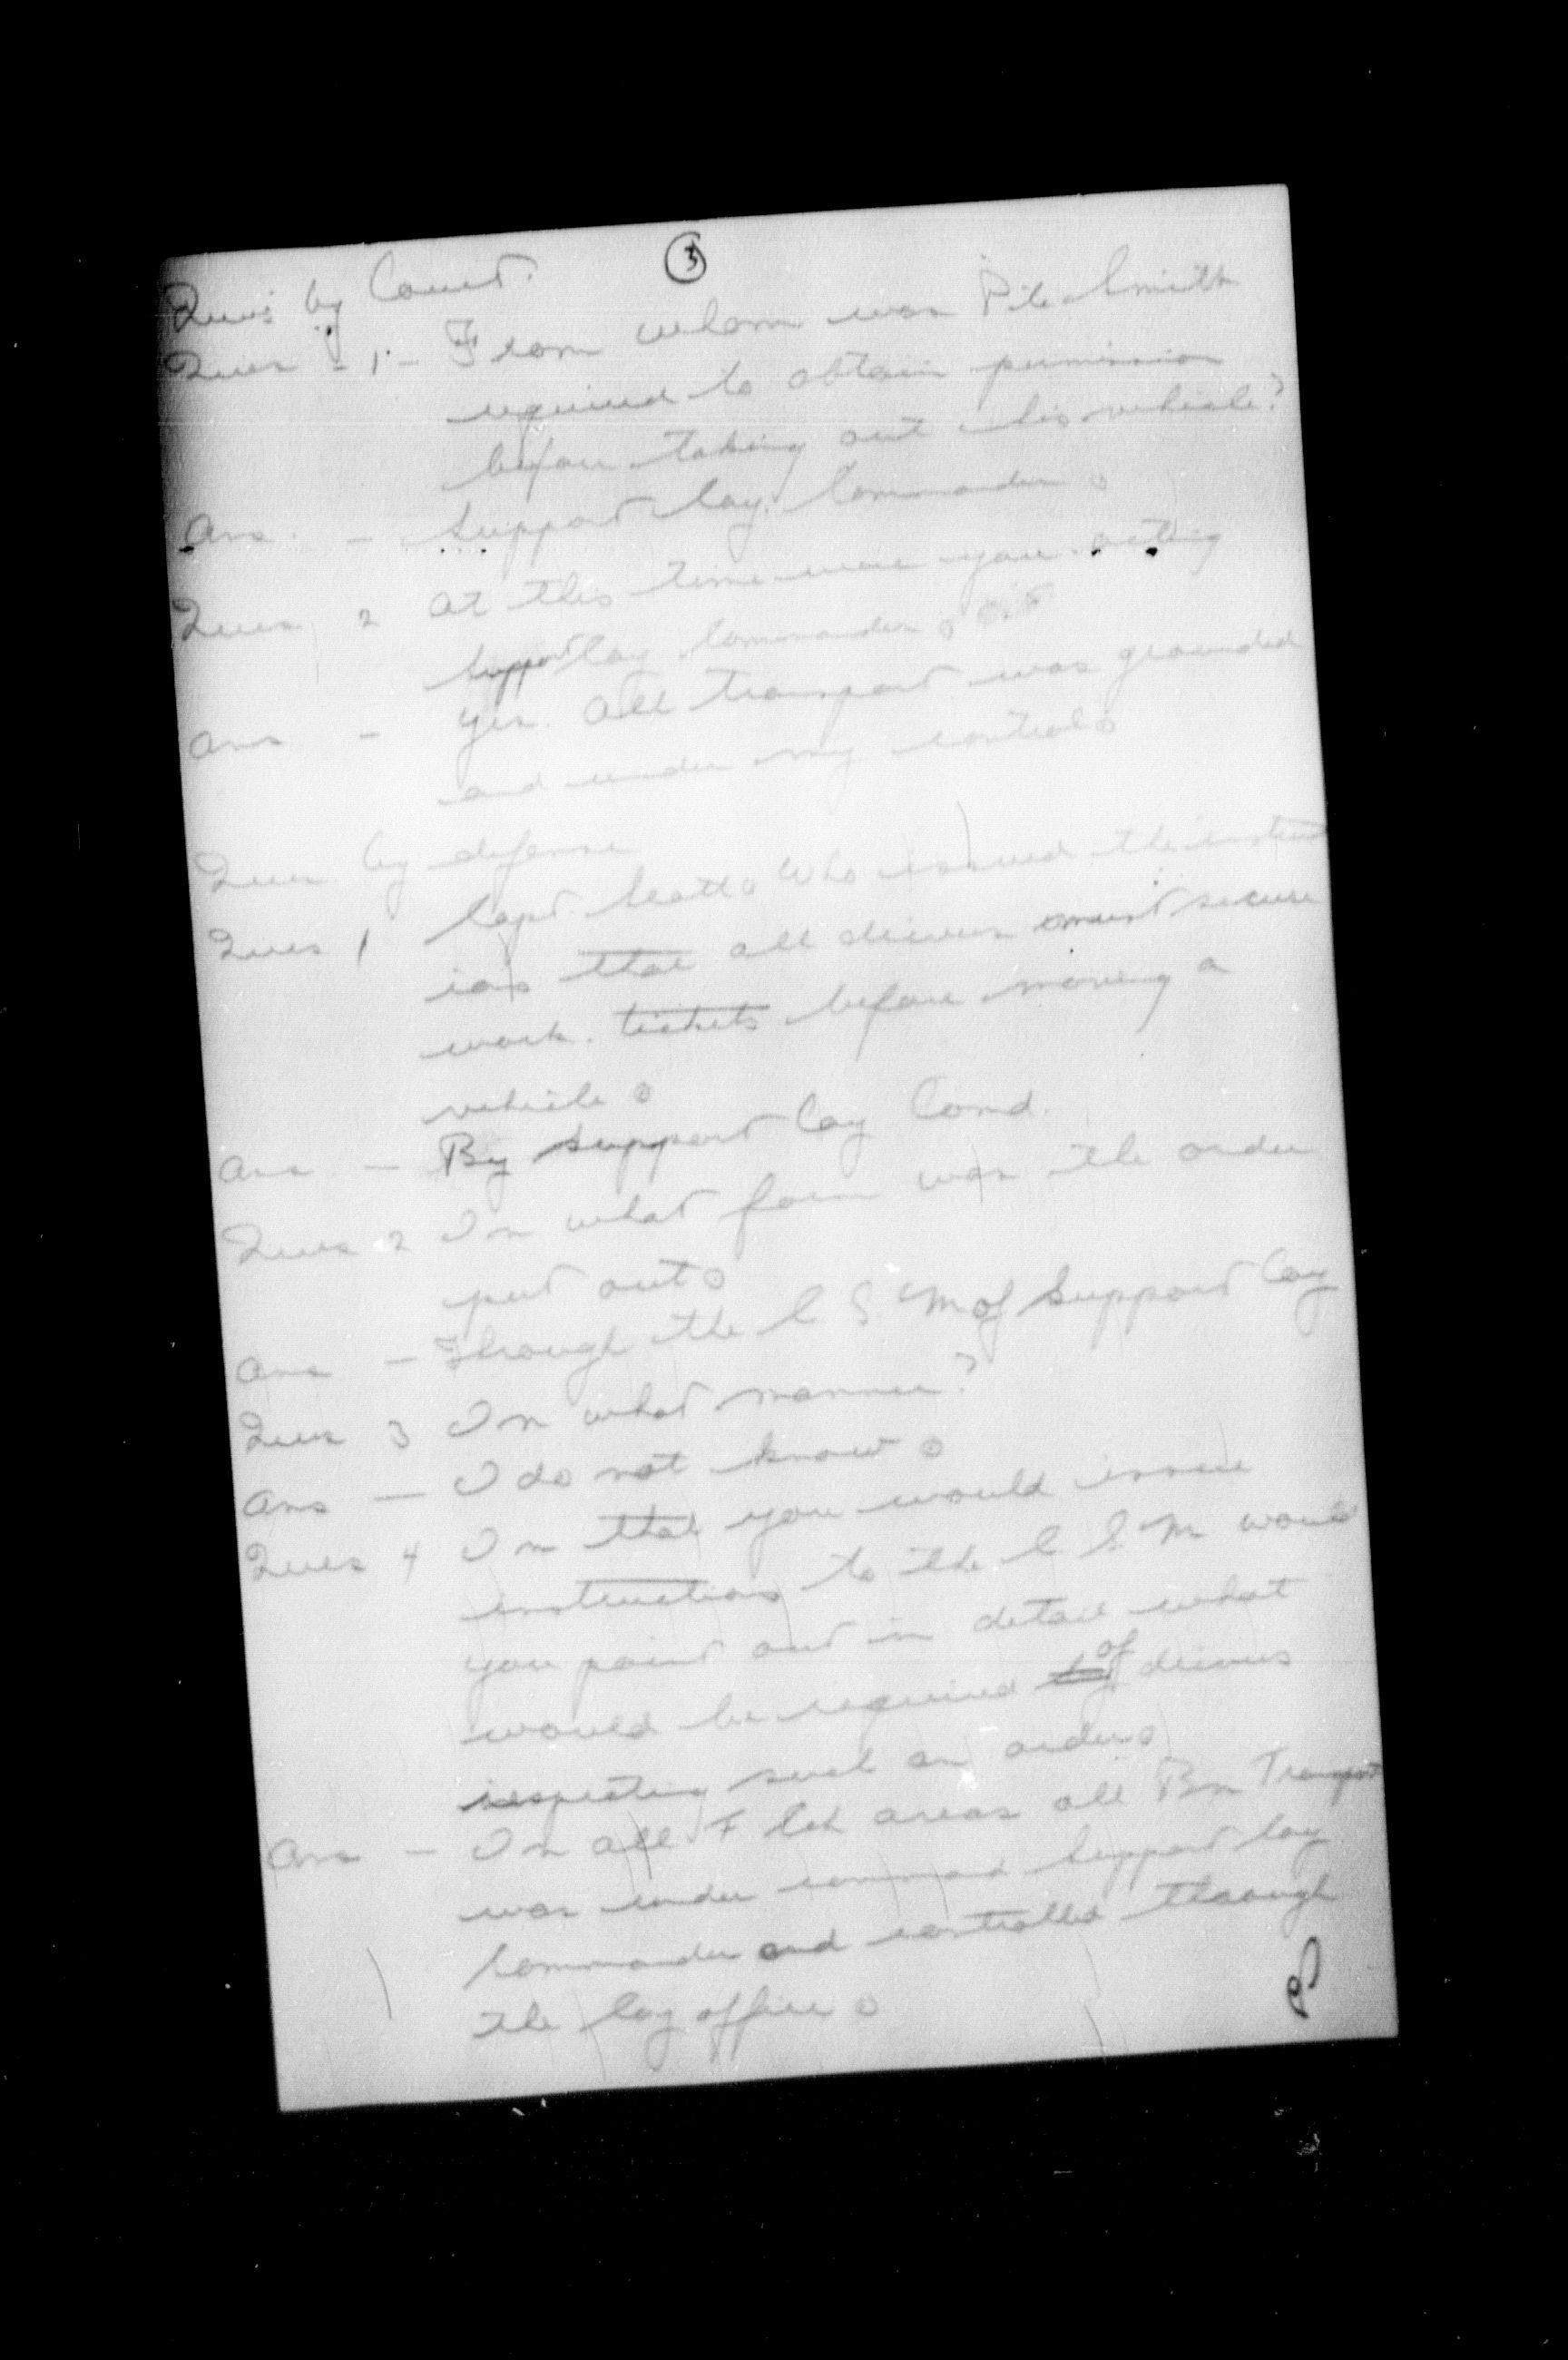 3
Ques by Court.
Ques - 1 - From whom was Pte Smith
required to obtain permission
before taking out his vehicle?
Ans. - Support Coy. Commander.
Ques 2 At this time were you acting
Support Coy Commander.
Ans - Yes. All transport was grounded
and under my control.
Ques by defense
Ques 1 Capt. Scott. Who issued the instruct
ions that all drivers must secure
work. tickets before moving a
vehicle.
Ans - By Support Coy Comd.
Ques 2 In what form was the order
put out.
Ans - Through the C S M of Support Coy
Ques 3 In what manner?
Ans - I do not know.
Ques 4 In that you would issue
instructions to the C S M would
you point out in detail what
would be required of drivers
respecting such an order.
Ans - In all F Ech areas all Bn Transport
was under command Support Coy
Commander and controlled through
the Coy office.